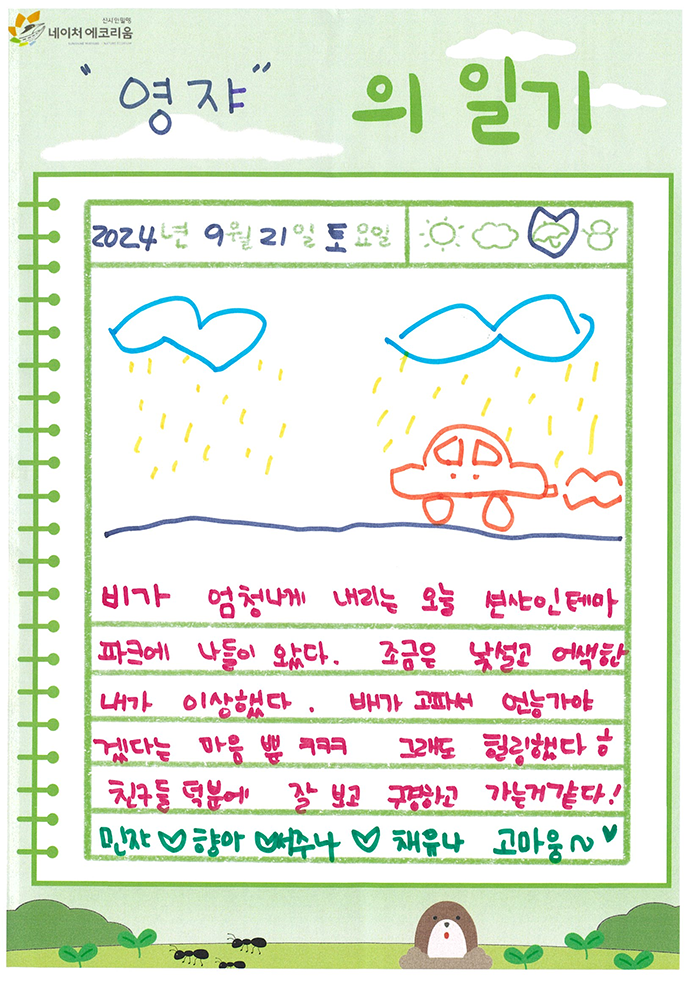 선샤인밀양
네이처 에코리움
"영쟈" 의 일기
2024년 9월 21일 토요일
비가 엄청나게 내리는 오늘 션샤인테마
파크에 나들이 왔다. 조금은 낯설고 어색한
내가 이상했다. 배가 고파서 언능가야
겠다는 마음 뿐 ㅋㅋㅋ 그래도 힐링했다 ㅎ
친구들 덕분에 잘 보고 구경하고 가는거같다!
민쟈 ♡ 향아 ♡ 써주나 ♡ 채유나 고마웅~ ♥